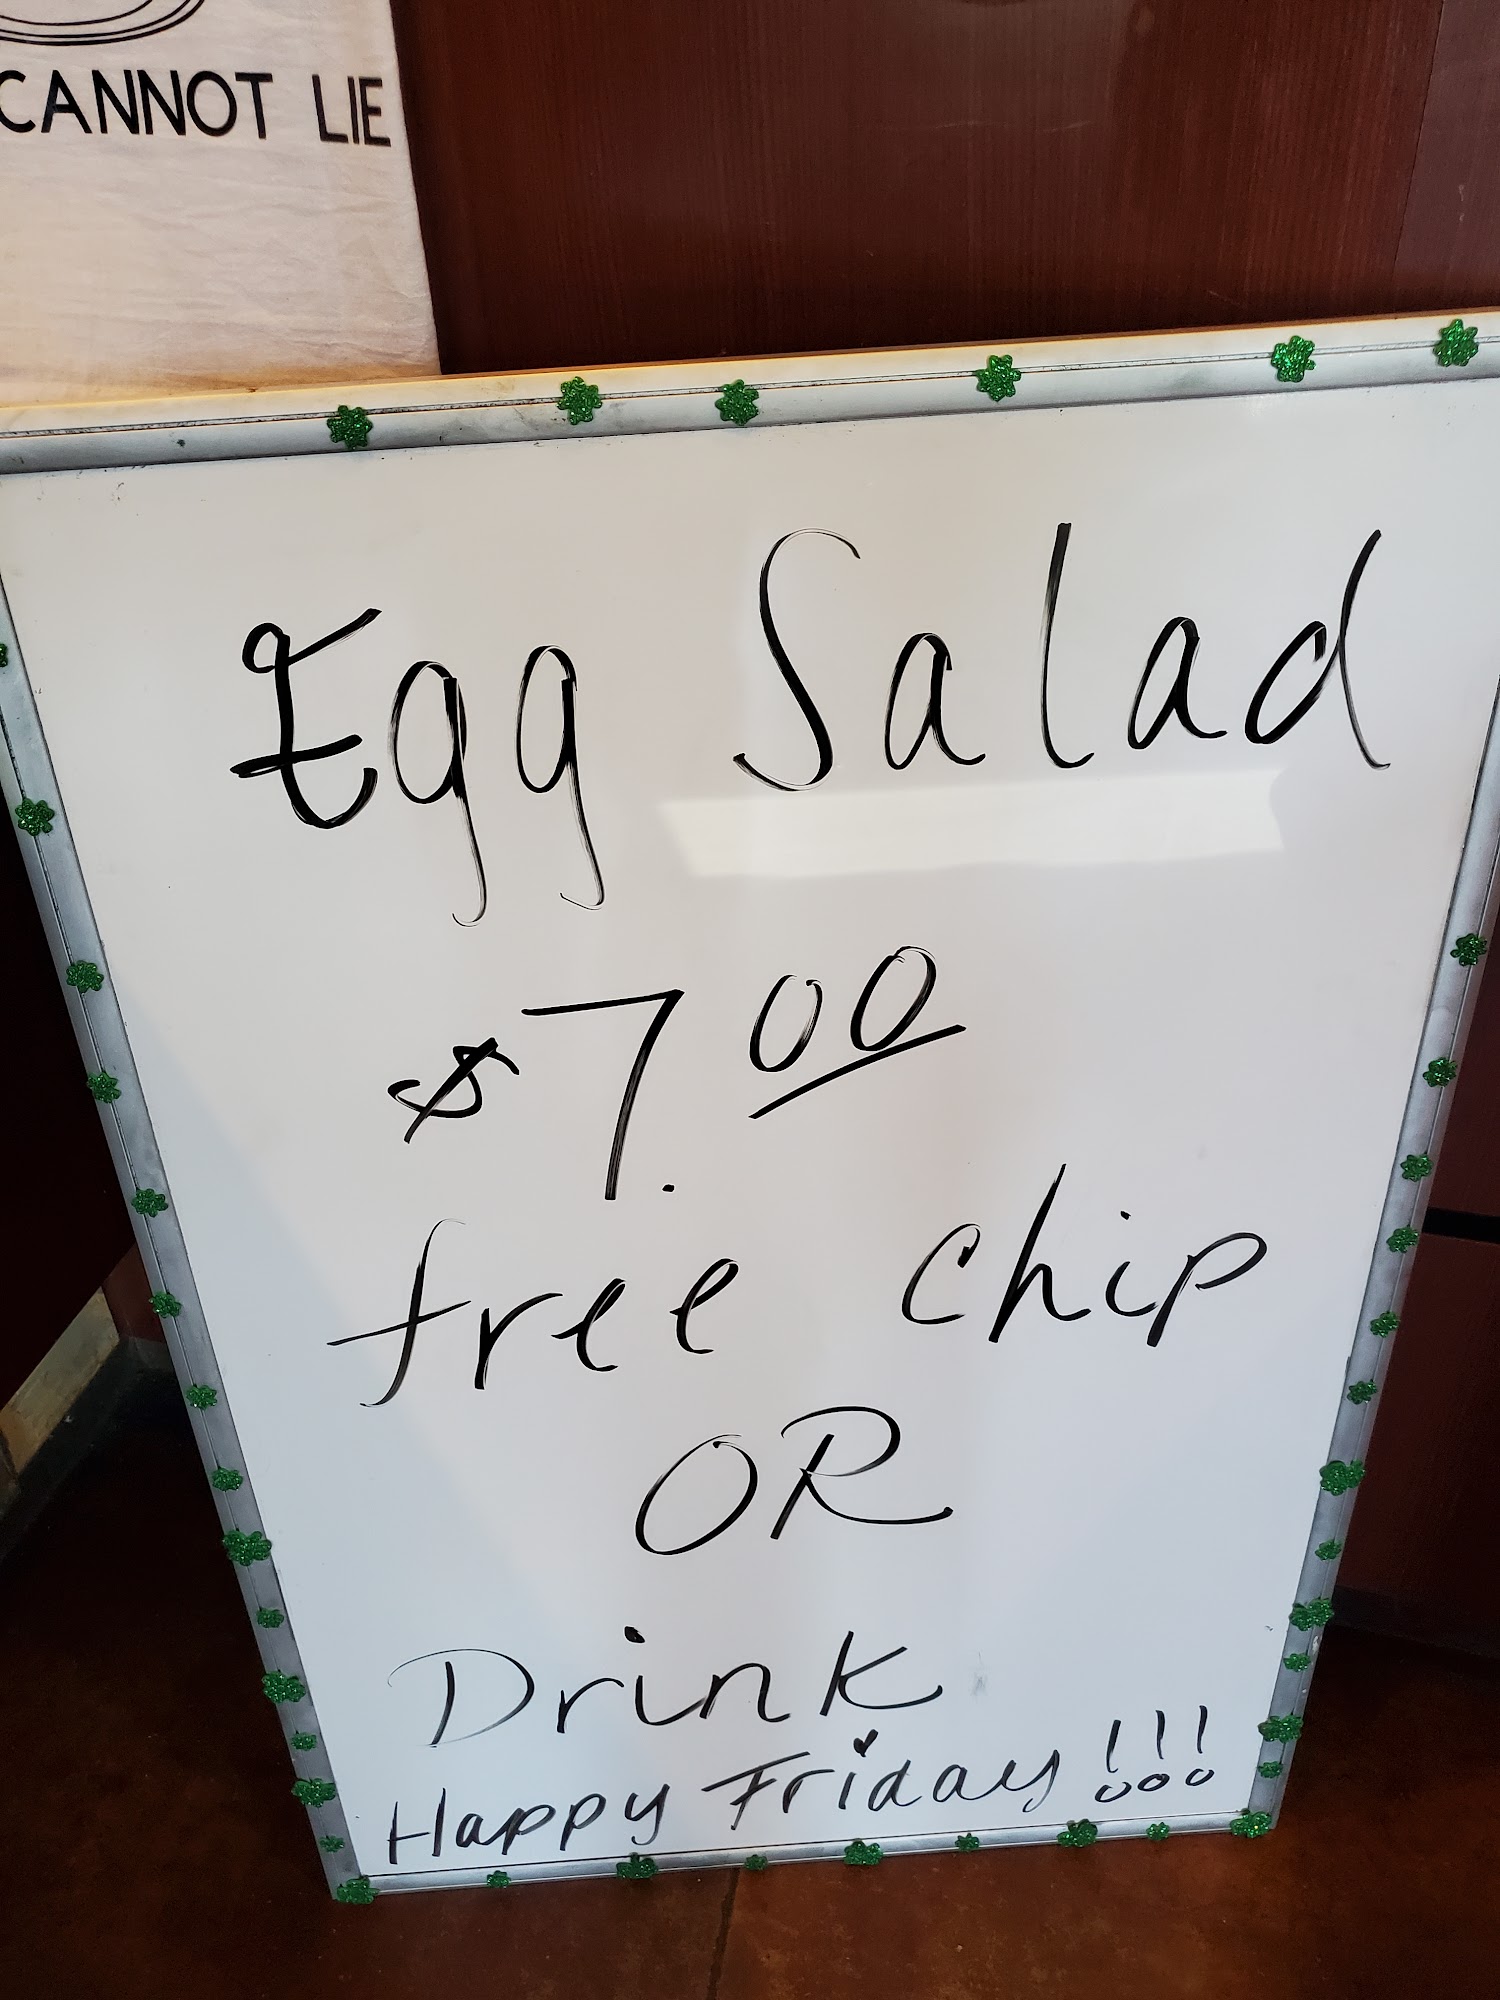 CANNOT LIE
Egg Salad
$7.00
free chip
OR
Drink
Happy Friday !!!